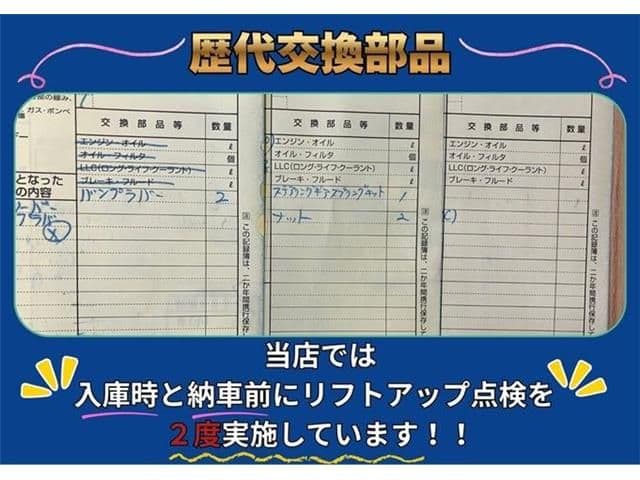 歴代交換部品
ガス・ボンベ
となった
の内容
交換部品等 数量
エンジン・オイル ℓ
オイル・フィルタ 個
LLC(ロング・ライフ・クーラント) ℓ
ブレーキ・フルード ℓ
バンプラバー 2
交換部品等 数量
エンジン・オイル ℓ
オイル・フィルタ 個
LLC(ロング・ライフ・クーラント) ℓ
ブレーキ・フルード ℓ
1
ナット 2
注 この記録簿は、二か年間携行保存して
交換部品等 数量
エンジン・オイル ℓ
オイル・フィルタ 個
LLC(ロング・ライフ・クーラント) ℓ
ブレーキ・フルード ℓ
注 この記録簿は、二か年間携行保存し
当店では
入庫時と納車前にリフトアップ点検を
２度実施しています！！